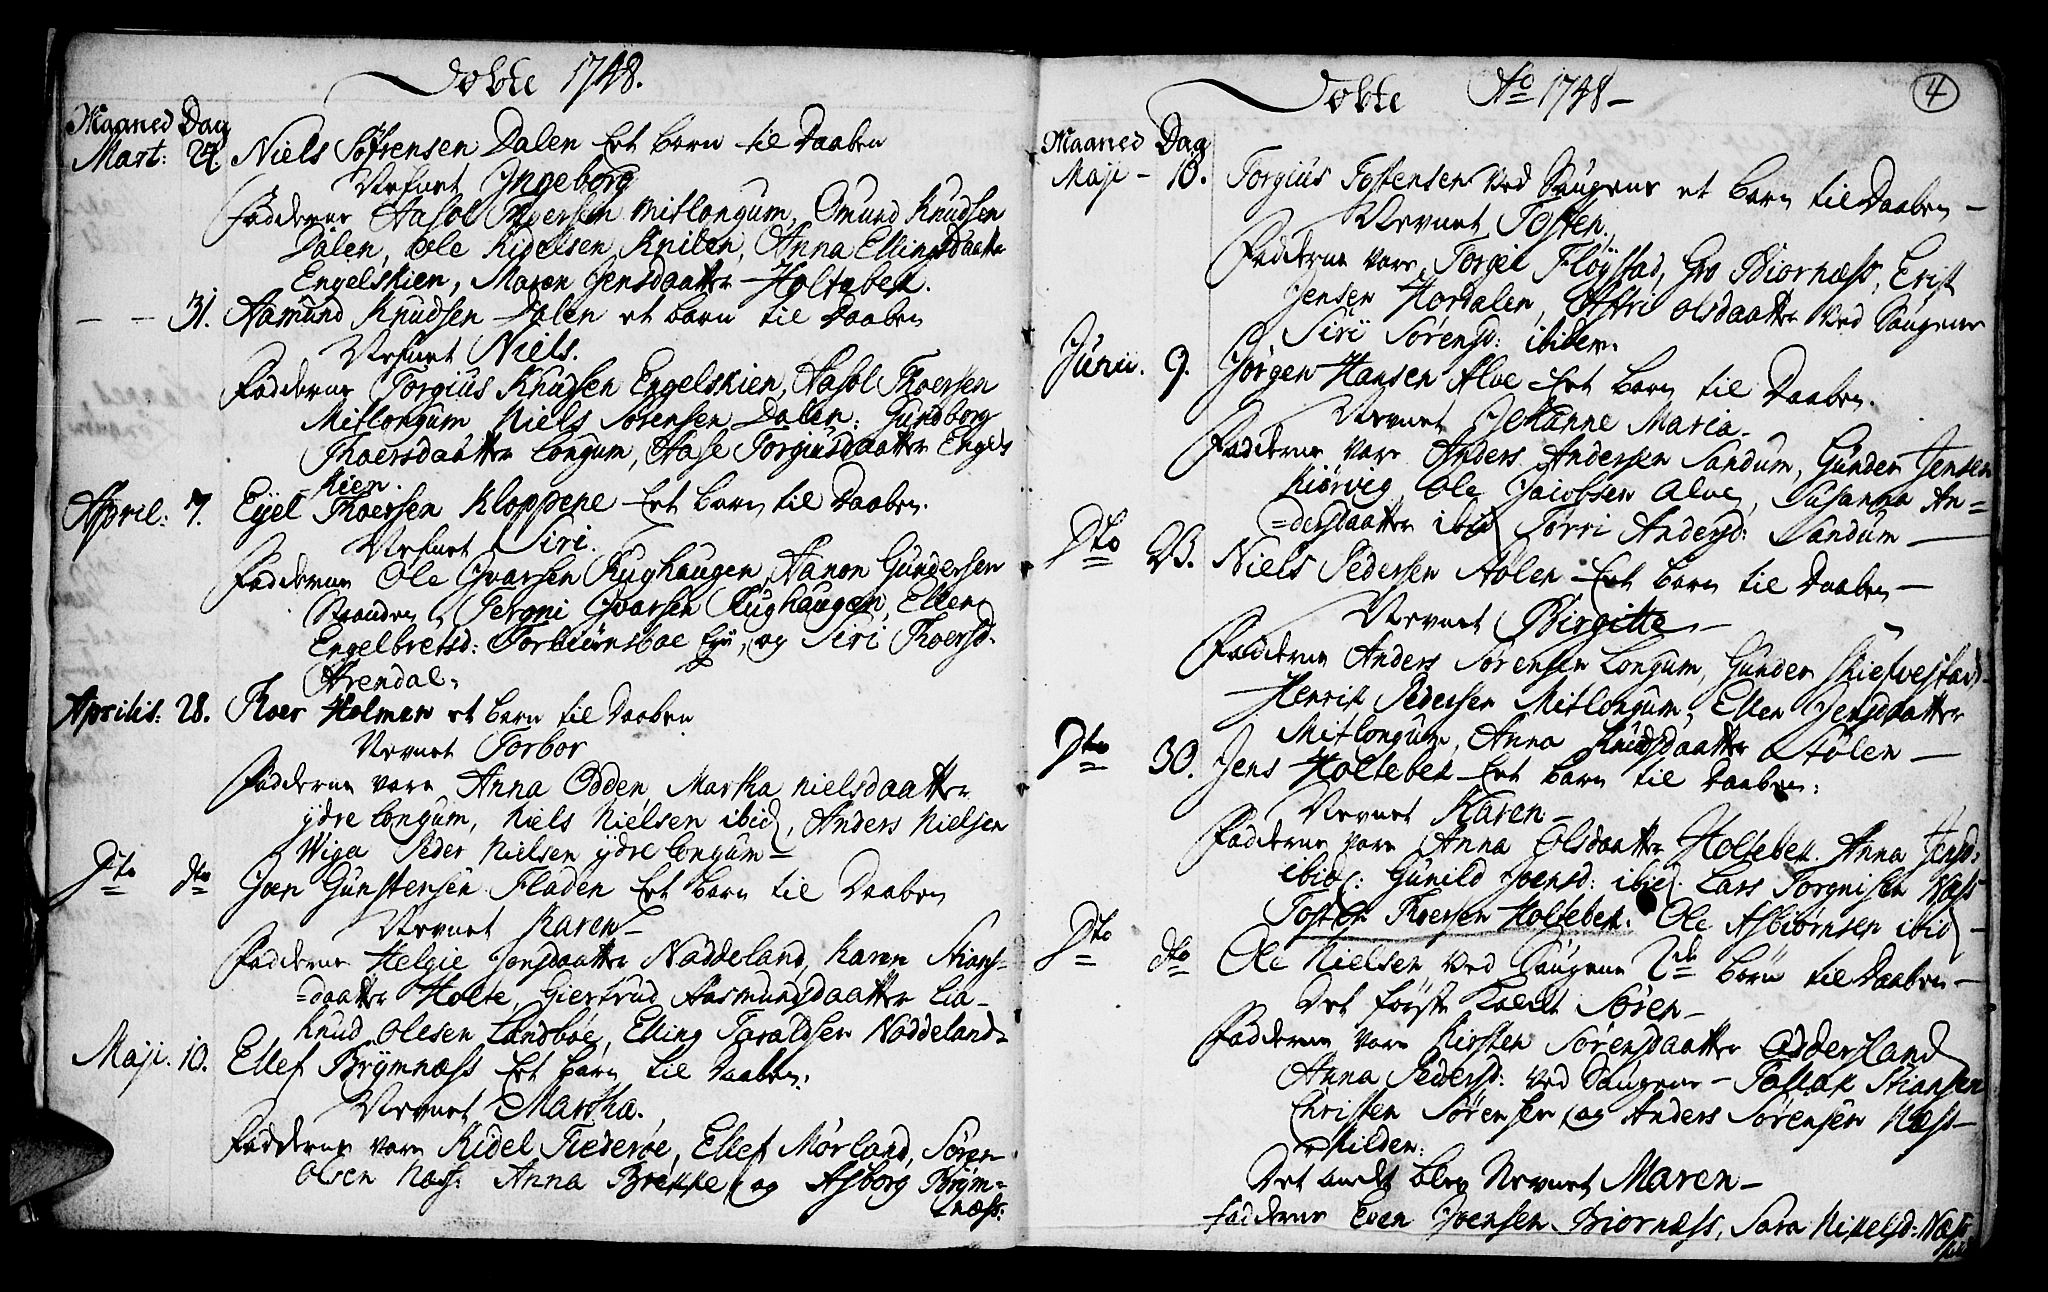 Døbte 1748.
Maaned Dag
Mart: 24. Niels Søfrensen Dalen Eet barn til Daaben
Nefnet Ingeborg
Fadderne Aasol Mitlongum, Omund Knudsen
Dalen, Ole Kidelsen Kniben, Anna Ellingsdaatter
Engelskien, Maren Jensdaatter Holtebek.
— — 31. Aamund Knudsen Dalen et barn til Daaben
Nefnet Niels.
Fadderne Torgius Knudsen Engelskien, Aasol Thoersen
Mitlongum Niels Sørensen Dalen, Gundborg
Thoersdaatter Longum, Aase Torgiusdaatter Engels
kien.
April: 7. Eyel Thoersen Kloppene Eet barn til Daaben.
Nefnet Siri.
Fadderne Ole Ivarsen Rughaugen, Aanon Gundersen
Tergni Ivarsen Rughaugen, Ellen
Engelbretsd: Torbiørnsboe og Siri Thoersd.
Arendal.
Aprilis: 28. Thoer Holmen et barn til Daaben
Nevnet Torbor
Fadderne vare Anna Odden Martha Nielsdaatter
ydre Longum, Niels Nielsen ibid, Anders Nielsen
Wiga Peder Nielsen ydre Longum—
Dto dto Joen Gunstensen Fladen Eet barn til Daaben
Nevnet Karen—
Fadderne Helgie Jonsdaatter Nøddeland, Karen Stians-
=daatter Holte, Giertrud Aasmundsdaatter Lia—
Knud Olesen Landsbøe, Elling Taraldsen Nøddeland—
Maji. 10. Ellef Brymnæss Eet barn til Daaben.
Nevnet Martha.
Fadderne vare Kidel Fiederøe, Ellef Mørland, Søren
Olsen Næss: Anna Brekke og Asborg Brym=
næss:
Døbte Ao 1748—
4
Maaned Dag
Maji — 10. Torgius Tostensen ved Saugene et barn til Daaben—
Nevnet Tosten.
Fadderne vare Torgie Fløystad, Gro Biornæss, Erik
Jensen Hordalen, Astri Olsdaatter ved Saugene
Siri Sørensd: ibidem.
Junii. 9. Jørgen Hansen Alve Eet barn til Daaben.
Nevnet Johanne Maria—
Fadderne vare Anders Andersen Sandum, Gunder Jensen
Kiørvig, Ole Jacobsen Alve, Susanna An=
=dersdaatter ibid Torri Andersd: Sandum—
Dto 23. Niels Pedersen Stølen Eet barn til Daaben—
Nevnet Birgitte—
Fadderne Anders Sørensen Longum, Gunder Skiefvestad—
Henrik Pedersen Mitlongum, Ellen Jensdaatter
Mitlongum, Anna Knudsdaatter Stølen—
Dto 30. Jens Holtebek Eet barn til Daaben.
Nevnet Karen—
Fadderne vare Anna Olsdaatter Holtebek. Anna Jensd:
ibid: Gunild Joensd: ibid. Lars Torgrisen Næss
Tosten Thoersen Holtebek: Ole Asbiørnsen ibid—
Dto dto Ole Nielsen ved Saugene 2de børn til Daaben—
Det første kaldt Søren—
Fadderne vare Kirsten Sørensdaatter Oddersland
Anna Pedersd: ved Saugene— Tollak Stiansen
Christen Sørensen, og Anders Sørensen Næss—
Kilden:
Det andet blev Nevnet Maren—
Fadderne Even Joensen Biornæss, Sara Nikelsd: Næss